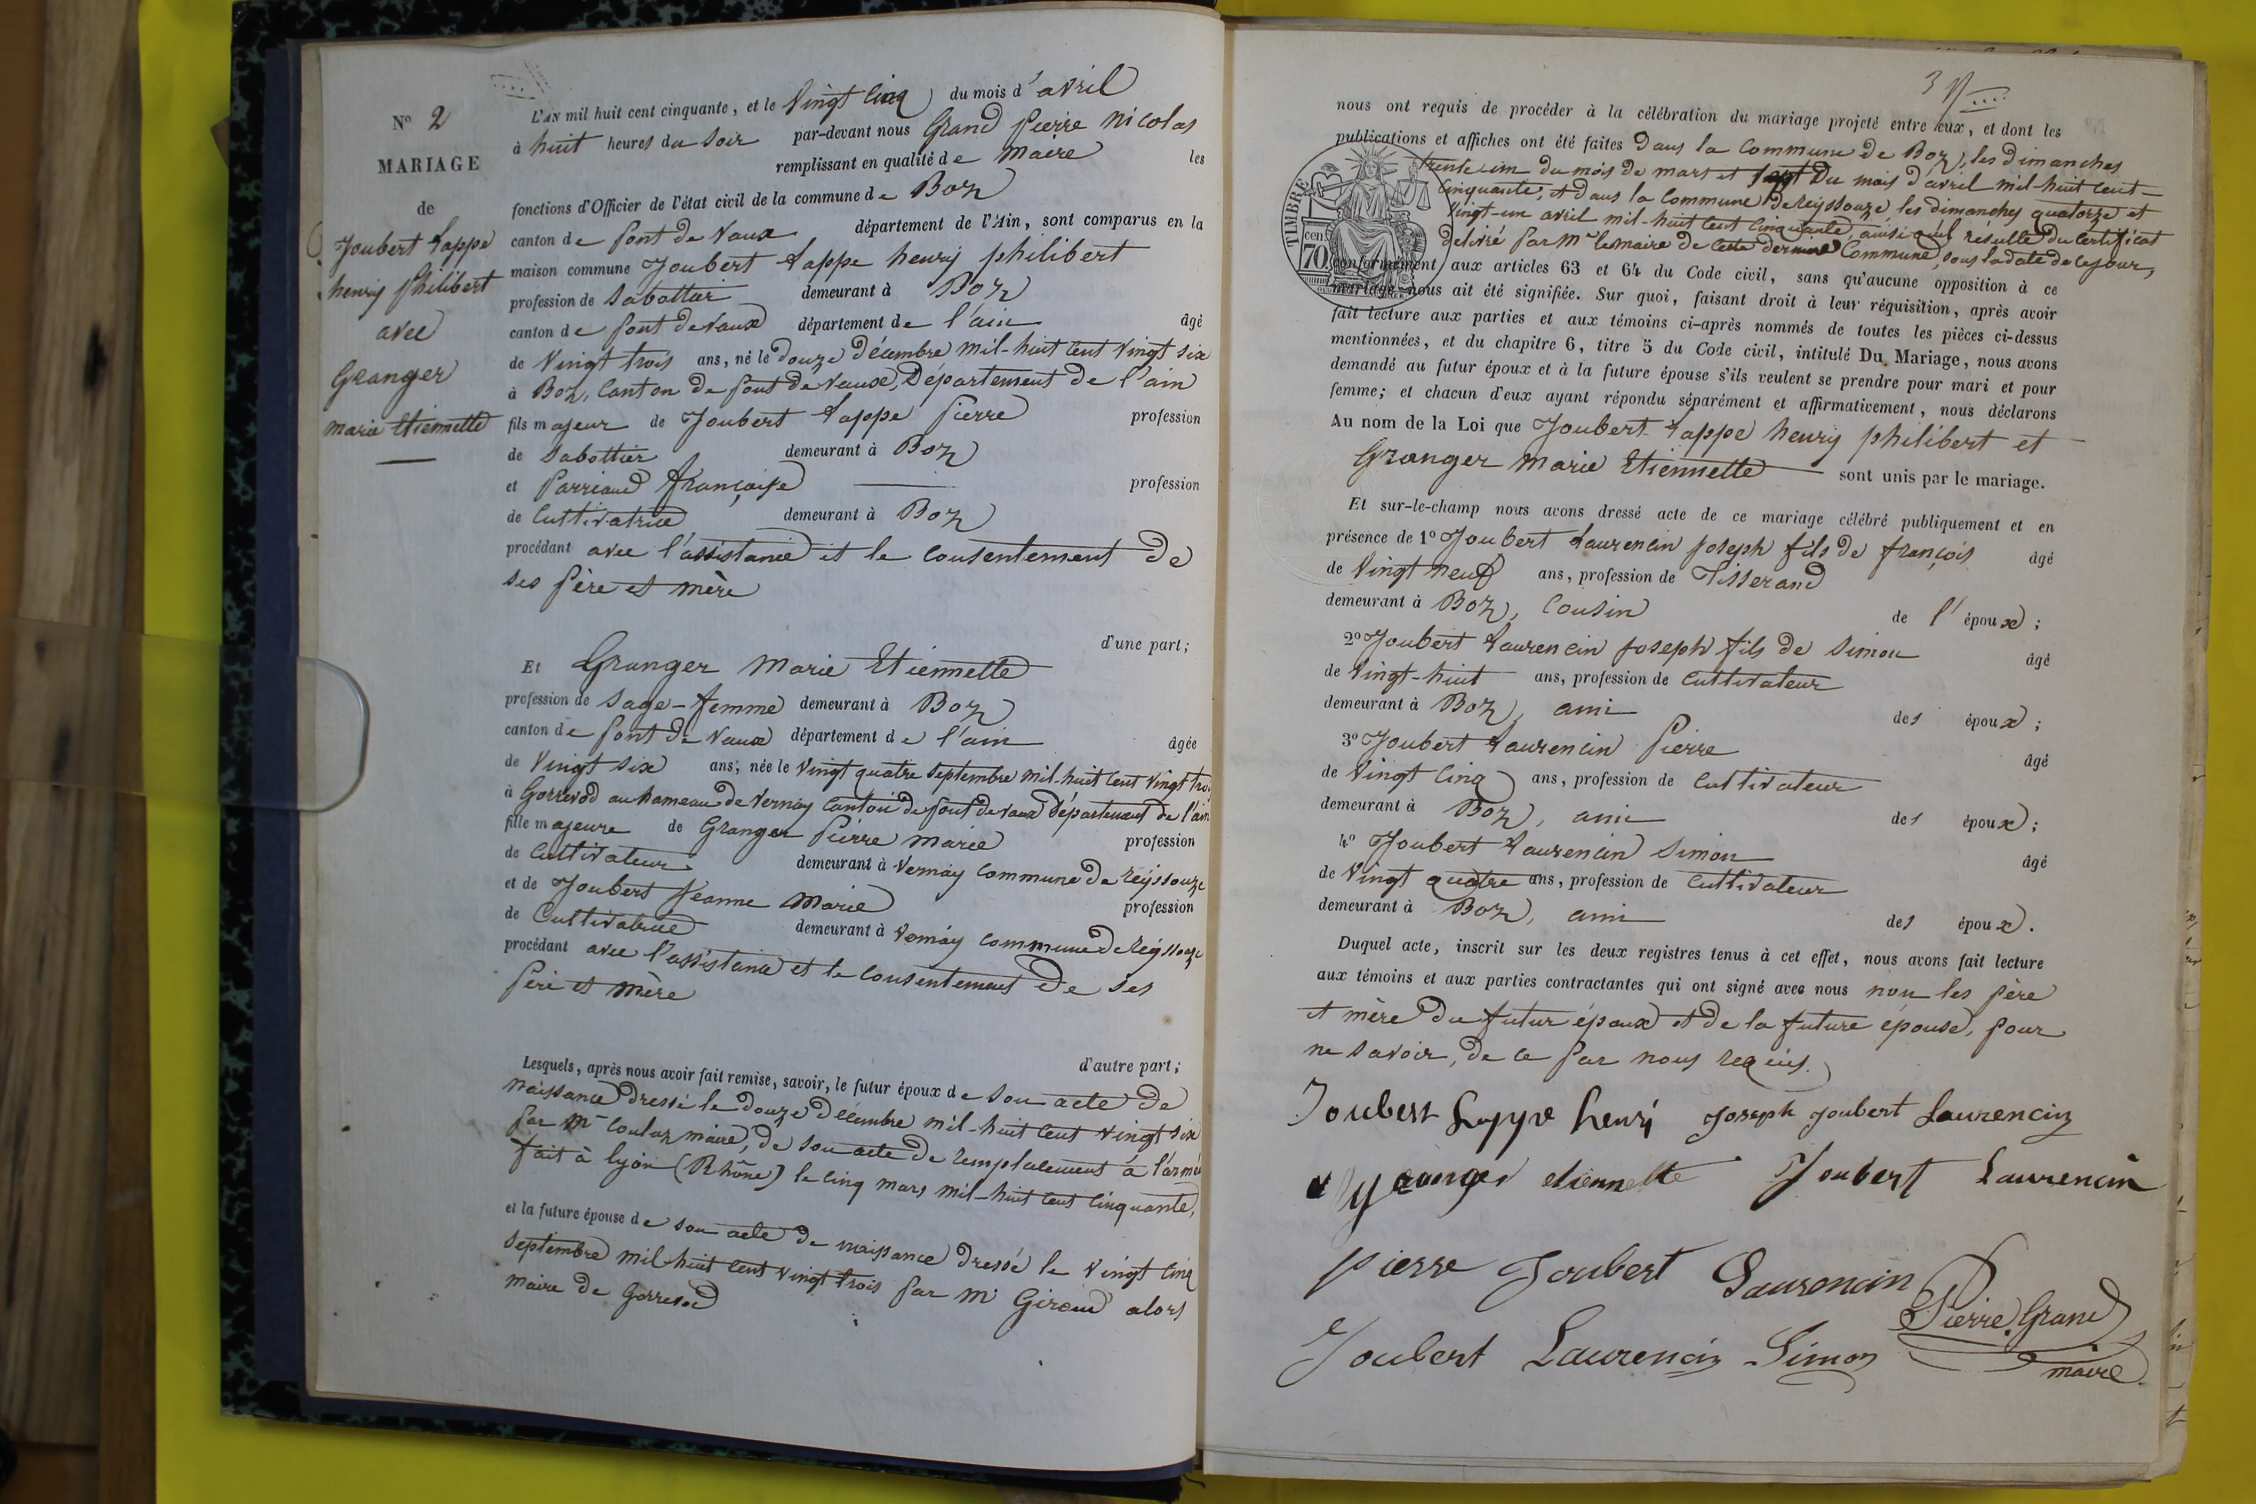 N° 2
MARIAGE
de
Joubert Lappe
henry Philibert
avec
Granger
marie Etiennette
L'AN mil huit cent cinquante, et le Vingt Cinq du mois d'avril
à huit heures du Soir par-devant nous Grand Pierre Nicolas
remplissant en qualité de Maire les
fonctions d'Officier de l'état civil de la commune de Boz
canton de Pont de Vaux département de l'Ain, sont comparus en la
maison commune Joubert Lappe henry philibert
profession de Sabottier demeurant à Boz
canton de Pont de Vaux département de l'ain âgé
de Vingt trois ans, né le douze décembre mil-huit cent vingt six
à Boz, Canton de Pont de Vaux, Département de l'ain
fils majeur de Joubert Lappe Pierre profession
de Sabottier demeurant à Boz
et Parriaud françoise profession
de Cultivatrice demeurant à Boz
procédant avec l'assistance et le consentement de
ses Père et mère
d'une part;
Et Granger Marie Etiennette
profession de Sage-femme demeurant à Boz
canton de Pont de Vaux département de l'ain âgée
de Vingt six ans, née le Vingt quatre Septembre mil-huit cent vingt trois
à Gorrevod au hameau de Vernay Canton de Pont de Vaux Département de l'ain
fille majeure de Granger Pierre Marie profession
de Cultivateur demeurant à Vernay Commune de Reyssouze
et de Joubert Jeanne Marie profession
de Cultivatrice demeurant à Vernay commune de Reyssouze
procédant avec l'assistance et le consentement de ses
Père et mère
d'autre part;
Lesquels, après nous avoir fait remise, savoir, le futur époux de Son acte de
naissance dressé le douze décembre mil-huit cent vingt six
par Mr Coulaz maire, de son acte de remplacement à l'armée
fait à lyon (Rhône) le cinq mars mil-huit cent cinquante,
et la future épouse de son acte de naissance dressé le vingt cinq
Septembre mil-huit cent vingt trois par Mr Giroud alors
maire de Gorrevod
nous ont requis de procéder à la célébration du mariage projeté entre eux, et dont les
publications et affiches ont été faites dans la Commune de Boz, les dimanches
trente-un du mois de mars et sept Du mois d'avril mil-huit cent-
cinquante, et dans la Commune de Reyssouze, les dimanches quatorze et
Vingt-un avril mil-huit cent cinquante, ainsi qu'il résulte du Certificat
délivré par Mr le maire de Cette dernière Commune, sous la date de ce jour,
TIMBRE
cen.
70
conformément aux articles 63 et 64 du Code civil, sans qu'aucune opposition à ce
mariage nous ait été signifiée. Sur quoi, faisant droit à leur réquisition, après avoir
fait lecture aux parties et aux témoins ci-après nommés de toutes les pièces ci-dessus
mentionnées, et du chapitre 6, titre 5 du Code civil, intitulé Du Mariage, nous avons
demandé au futur époux et à la future épouse s'ils veulent se prendre pour mari et pour
femme; et chacun d'eux ayant répondu séparément et affirmativement, nous déclarons
Au nom de la Loi que Joubert Lappe henry philibert et
Granger Marie Etiennette sont unis par le mariage.
Et sur-le-champ nous avons dressé acte de ce mariage célébré publiquement et en
présence de 1° Joubert Laurencin Joseph fils de françois âgé
de Vingt neuf ans, profession de Tisserand
demeurant à Boz, Cousin de l'époux;
2° Joubert Laurencin Joseph fils de Simon âgé
de Vingt-huit ans, profession de Cultivateur
demeurant à Boz, ami des époux;
3° Joubert Laurencin Pierre âgé
de Vingt Cinq ans, profession de Cultivateur
demeurant à Boz, ami des époux;
4° Joubert Laurencin Simon âgé
de Vingt quatre ans, profession de Cultivateur
demeurant à Boz, ami des époux.
Duquel acte, inscrit sur les deux registres tenus à cet effet, nous avons fait lecture
aux témoins et aux parties contractantes qui ont signé avec nous non les père
et mère du futur époux et de la future épouse, pour
ne savoir, de ce par nous requis.
Joubert Lappe henri Joseph Joubert Laurencin
Granger etiennette Joubert Laurencin
pierre Joubert Laurencin
Pierre Grand
maire
Joubert Laurencin Simon